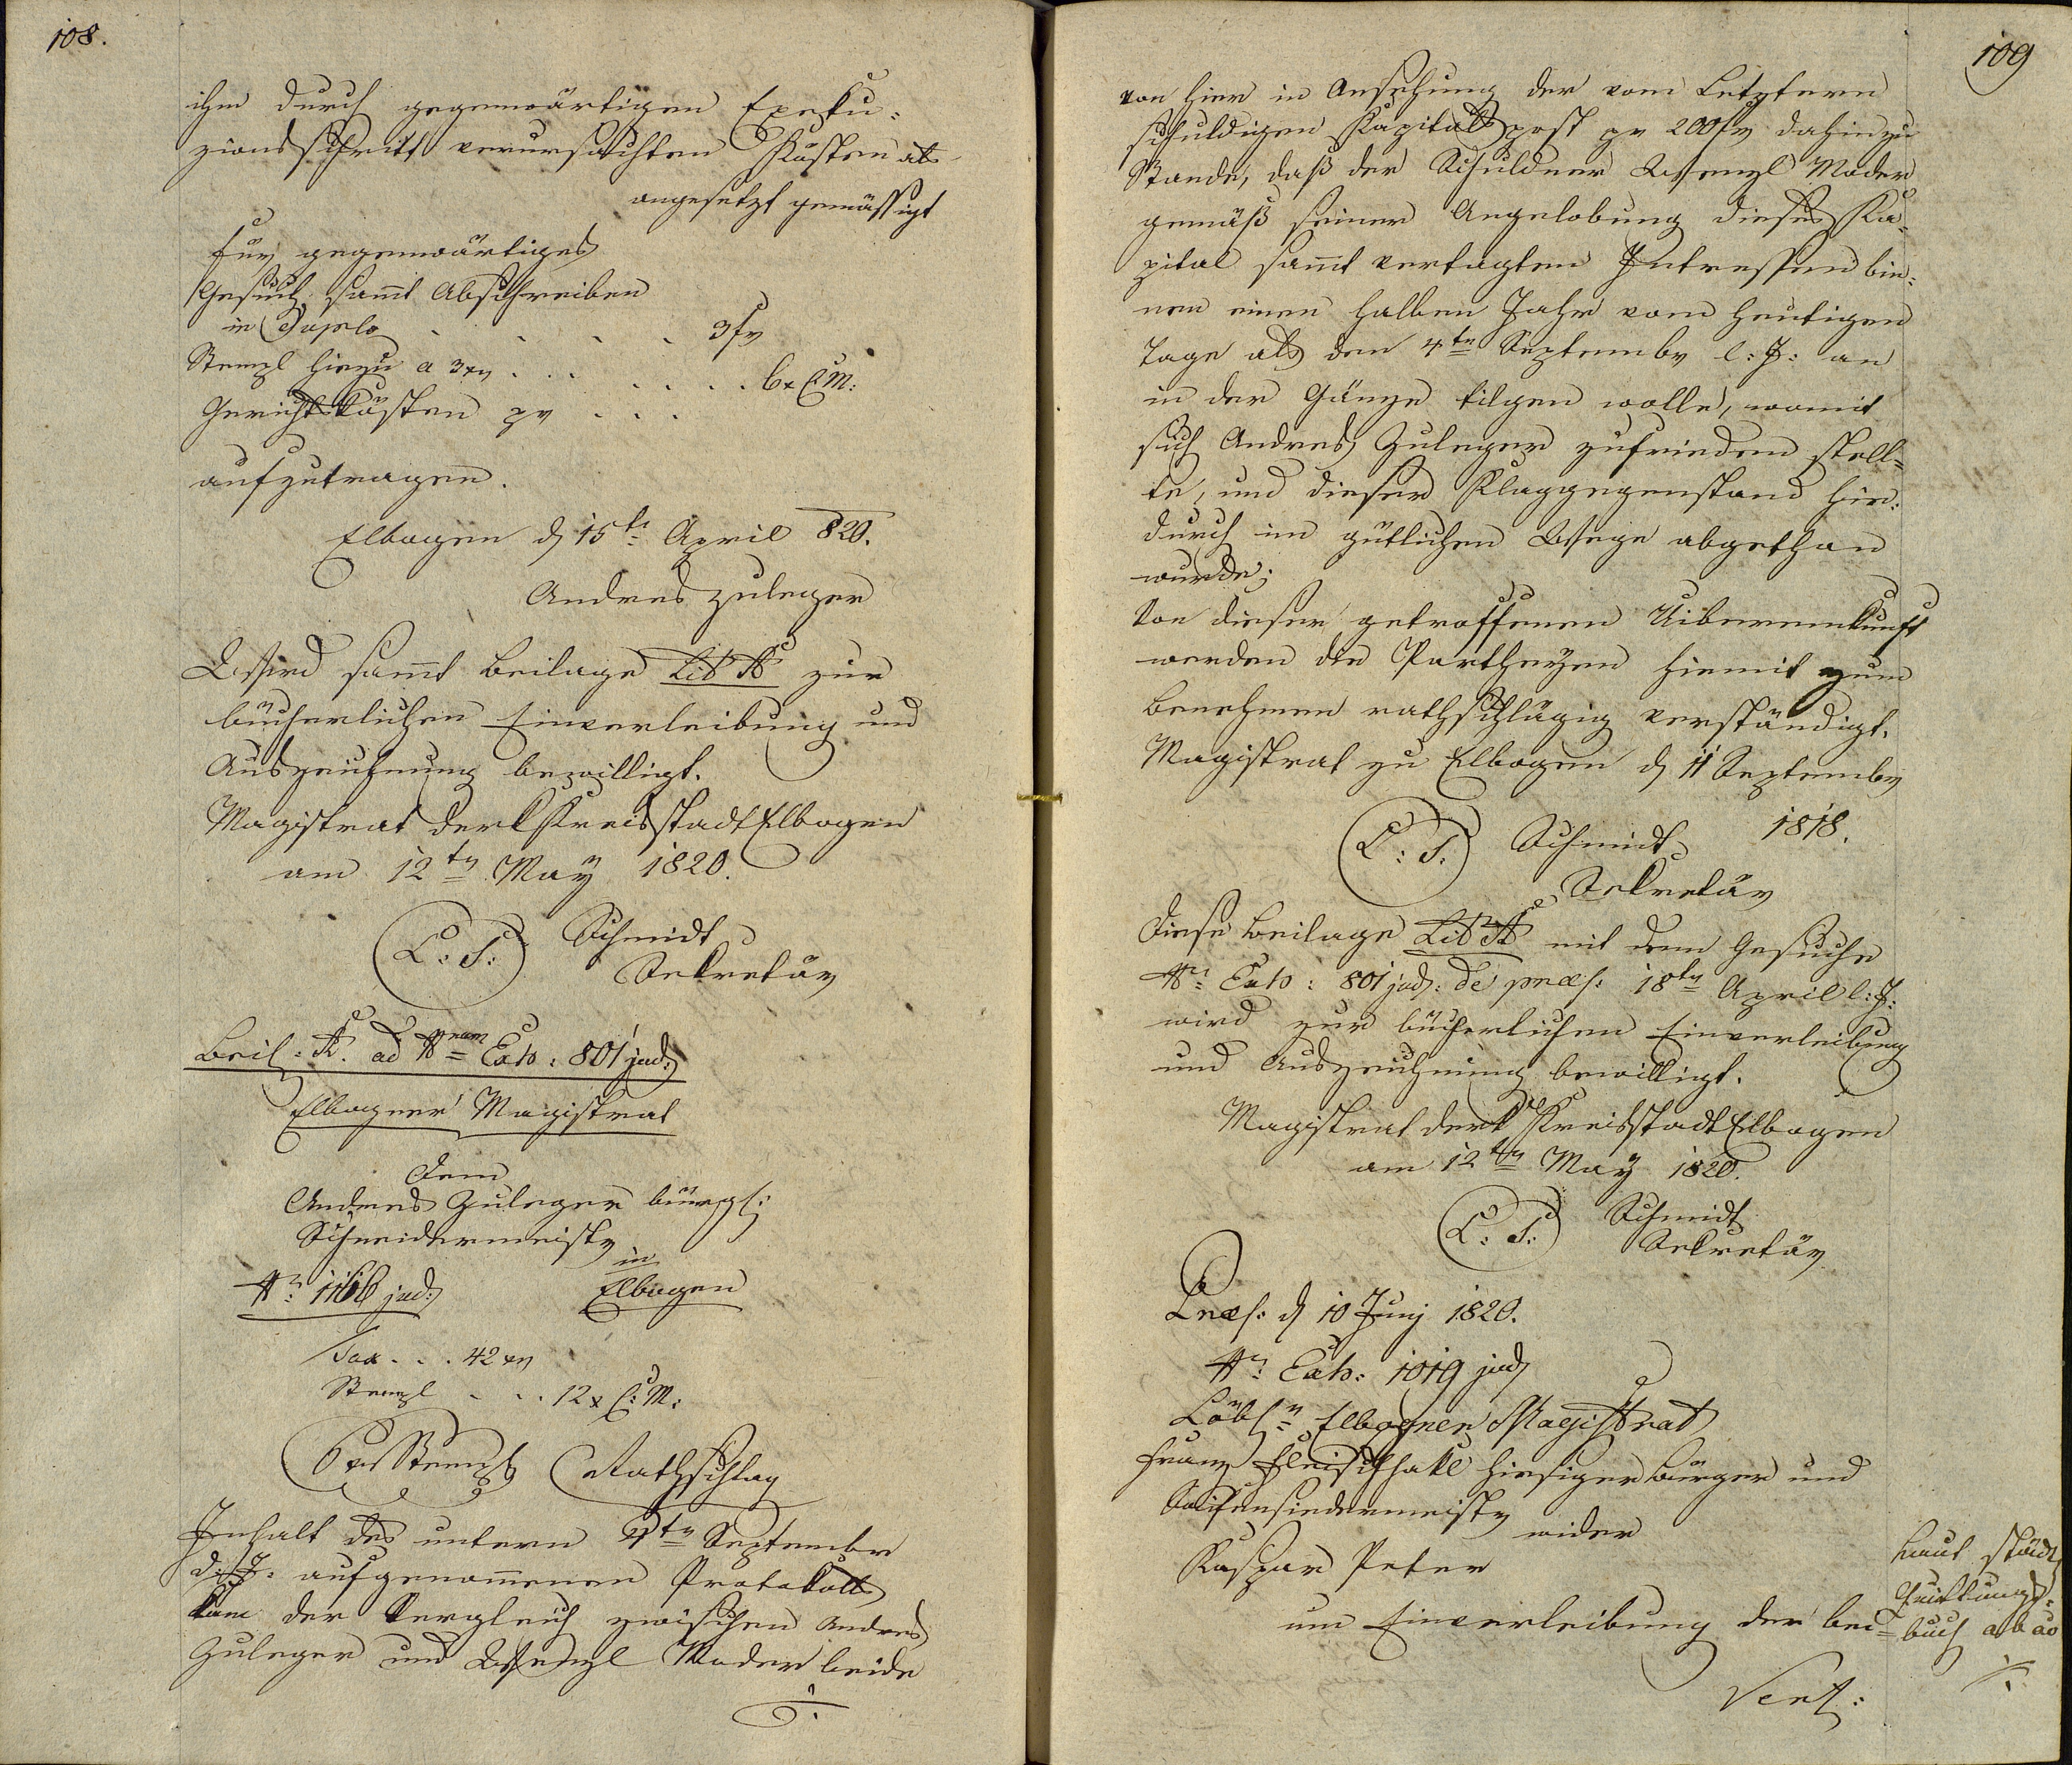 108.
ihm durch gegenwärtigen Exeku-
zionsschritt verursachten Kosten als
angesetzt gemässigt
für gegenwärtiges
Gesuch samt Abschreiben
in Duplo . . . . 3 fr
Stempl hiezu a 3 xr . . . . . . . 6 x C. M:
Gerichtskösten pr . . .
aufzutragen.
Elbogen d 15tn April 820.
Andres Zuleger
Wird samt Beilage Lit A zur
bücherlichen Einverleibung und
Auszeichnung bewilligt.
Magistrat der k Kreisstadt Elbogen
am 12tn May 1820.
L: S: Schmidt
Sekretär
Beil: A. ad Nram Exh: 801 jud:
Elbogner Magistrat
Dem
Andres Zuleger bürgl:
Schneidermeister
in
Nr: 1166 jud: Elbogen
Tax . . . 42 xr
Stempl . . . 12 x C: M:
6 xr Stempl Rathschlag
Inhalt des unterm 4tn September
d: J: aufgenommenen Protokolls
kam der Vergleich zwischen Andres
Zuleger und Wenzl Moder beide
./.
109
von hier in Ansehung der vom Letztern
schuldigen Kapitalspost pr 200 fr dahin zu
Stande, daß der Schuldner Wenzl Moder
gemäß seiner Angelobung dieses Ka-
pital samt vertagten Intressen bin-
nen einen halben Jahr vom heutigen
Tage als den 4tn September l: J: an
in der Gänze tilgen wolle, womit
sich Andres Zuleger zufrieden stell-
te, und dieser Klaggegenstand hie-
durch im gütlichen Wege abgethan
wurde;
Von dieser getroffenen Uibereinkunft
werden die Partheyen hiemit zum
Benehmen rathschlägig verständigt.
Magistrat zu Elbogen d 11 September
1818.
L: S: Schmidt
Sekretär
Diese Beilage Lit A mit dem Gesuche
Nr: Exh: 801 jud: de præs: 18tn April l: J:
wird zur bücherlichen Einverleibung
und Auszeichnung bewilligt.
Magistrat der k Kreisstadt Elbogen
am 12tn May 1820.
L: S: Schmidt
Sekretär
Præs: d 10 Juny 1820.
Nr: Exh: 1019 jud
Löblr Elbogner Magistrat
Franz Fleischhakl hiesiger Bürger und
Seifensiedermeister
wider
Kaspar Peter
um Einverleibung der bei-
Vert:
laut städt
Quittungs-
buch ab ao
./.